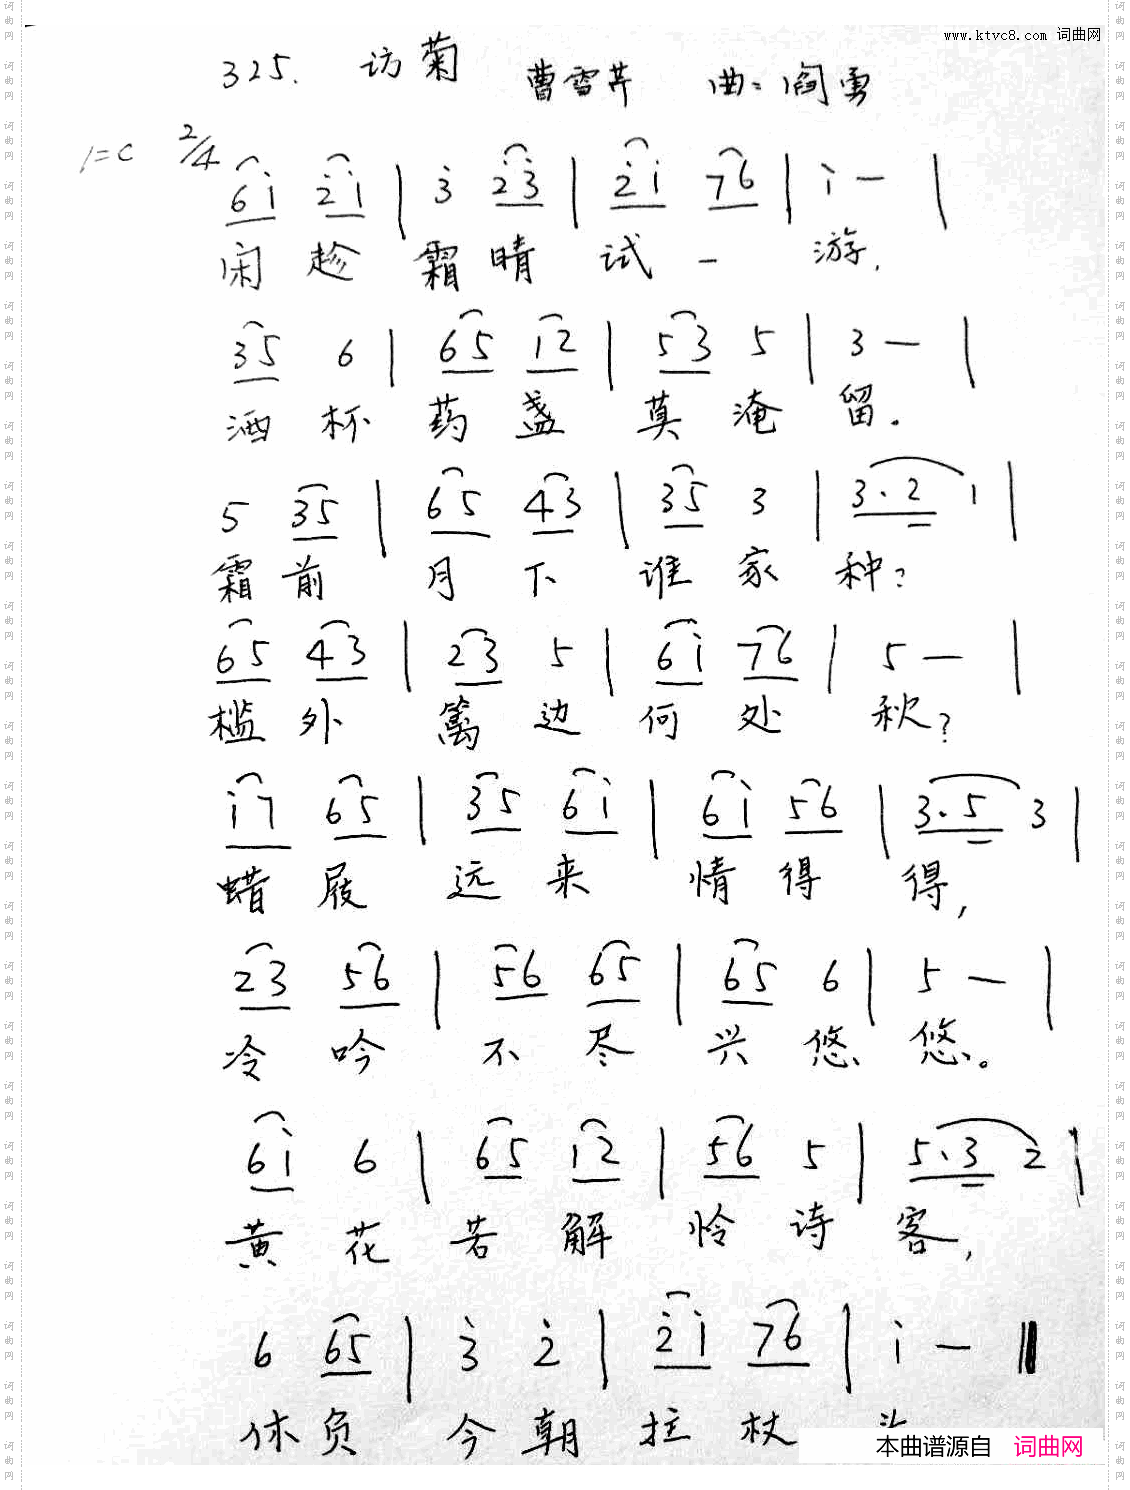 www.ktvc8.com 词曲网
325. 访菊 曹雪芹 曲:阎勇
1=C 2/4
6i 2i | 3 23 | 2i 76 | i — |
闲趁 霜晴 试一 游,
35 6 | 65 12 | 53 5 | 3 — |
酒杯 药盏 莫淹 留。
5 35 | 65 43 | 35 3 | 3.2 1 |
霜前 月下 谁家 种?
65 43 | 23 5 | 6i 76 | 5 — |
槛外 篱边 何处 秋?
i7 65 | 35 6i | 6i 56 | 3.5 3 |
蜡屐 远来 情得 得,
23 56 | 56 65 | 65 6 | 5 — |
冷吟 不尽 兴悠 悠。
6i 6 | 65 12 | 56 5 | 5.3 2 |
黄花 若解 怜诗 客,
6 65 | 3 2 | 2i 76 | i — ‖
休负 今朝 拄杖
本曲谱源自 词曲网